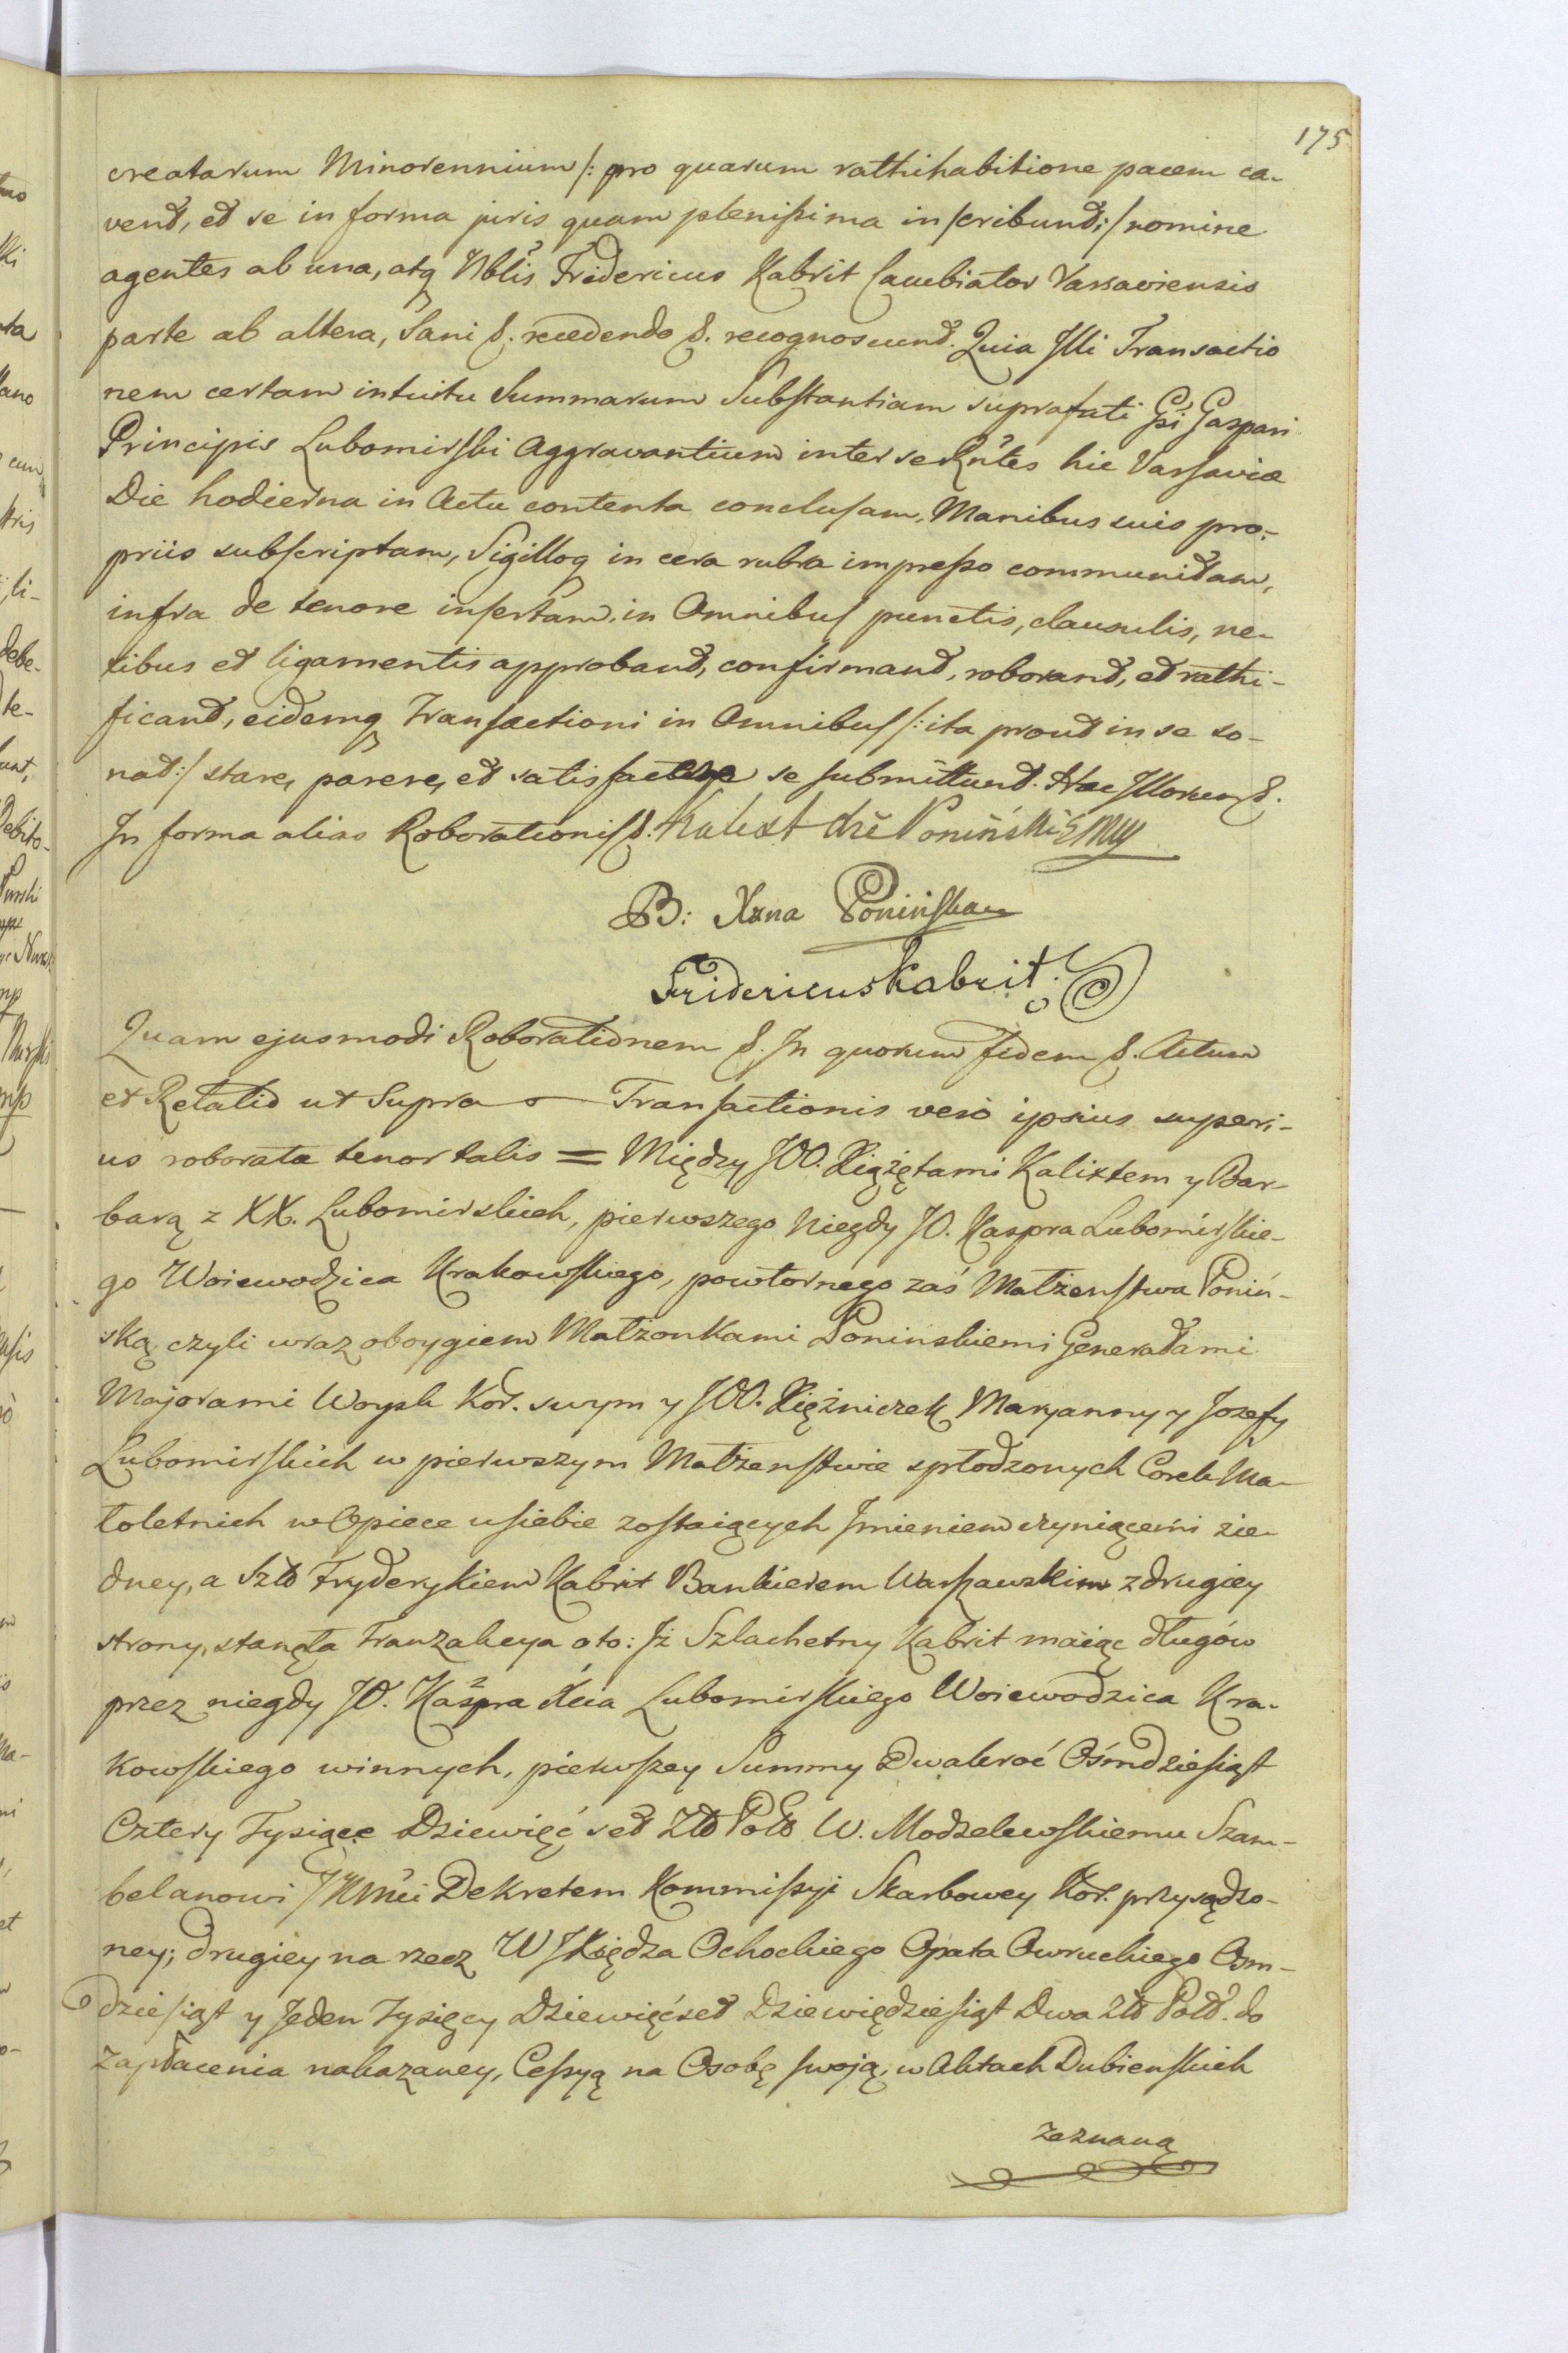 175
creatarum Minorennium /: pro quarum rathihabitione pacem ca-
vend, et se in forma juris quam plenissima inscribund :/ nomine
agentes ab una, atq Nblis Fridericus Kabrit Cambiator Varsaviensis
parte ab altera, Sani &. recedendo &. recognoscund. Quia Illi Transactio
nem certam intuitu Summarum Substantiam suprafati Gsi Gaspari
Principis Lubomirski Aggravantium inter se Rntes hic Varsaviæ
Die hodierna in Actu contenta conclusam, Manibus suis pro-
priis subscriptam, Sigilloq in cera rubra impresso communitam,
infra de tenore insertam, in Omnibus punctis, clausulis, ne-
xibus et ligamentis approband, confirmand, roborand, et rathi-
ficand, eidemq Transactioni in Omnibus /: ita prout in se so-
nat :/ stare, parere, et satisfacere se submittund. Hac Illorum &.
In forma alias Roborationis &. Kalixt Xże Poniński mp
B: Xzna Ponińska
Fridericus Kabrit
Quam ejusmodi Roborationem &. In quorum fidem &. Actum
et Relatio ut Supra — Transactionis vero ipsius superi-
us roboratæ tenor talis = Między JOO. Xiążętami Kalixtem y Bar-
barą z XX. Lubomirskich, pierwszego Niegdy JO. Kaspra Lubomirskie-
go Woiewodzica Krakowskiego, powtornego zaś Małżenstwa Poniń-
ską, czyli wraz oboygiem Małżonkami Poninskiemi Generałami
Majorami Woysk Kor. swym y JOO. Xiężniczek Maryanny y Jozefy
Lubomirskich w pierwszym Małżenstwie spłodzonych Corek Ma-
łoletnich w Opiece u siebie zostaiących Imieniem czyniącemi z ie-
dney, a Szło Fryderykiem Kabrit Bankierem Warszawskim z drugiey
strony, stanęła Tranzakcya o to: Iż Szlachetny Kabrit maiąc długów
przez niegdy JO. Kaspra Xcia Lubomirskiego Woiewodzica Kra-
kowskiego winnych, pierwszey Summy Dwakroć Ośmdziesiąt
Cztery Tysiące Dziewięć set Złł Poll W. Modzelewskiemu Szam-
belanowi JKMci Dekretem Kommissyi Skarbowey Kor. przysądzo-
ney; drugiey na rzecz W JXiędza Ochockiego Opata Owruckiego Osm-
dziesiąt y Jeden Tysięcy Dziewięćset Dziewiędziesiąt Dwa Złł Poll. do
zapłacenia nakazaney, Cessyą na Osobę swoją, w Aktach Dubienskich
zeznaną